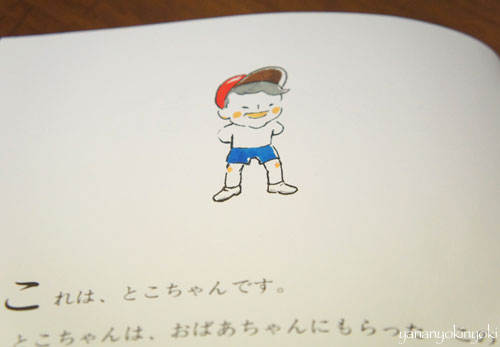 これは、とこちゃんです。
とこちゃんは、おばあちゃんにもらった
yananyokinyoki